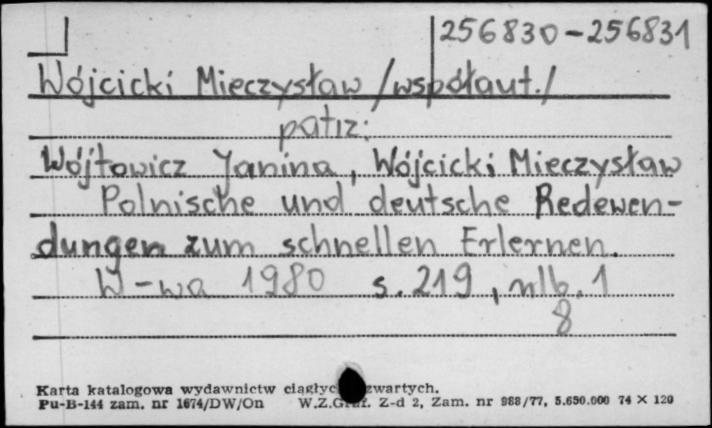 256830-256831
Wójcicki Mieczysław /współaut./
patrz:
Wójtowicz Janina, Wójcicki Mieczysław
Polnische und deutsche Redewen-
dungen zum schnellen Erlernen.
W-wa 1980 s. 219, nlb. 1
8
Karta katalogowa wydawnictw ciągłyc zwartych.
Pu-B-144 zam. nr 1674/DW/On W.Z.Graf. Z-d 2, Zam. nr 988/77, 5.650.000 74 × 120